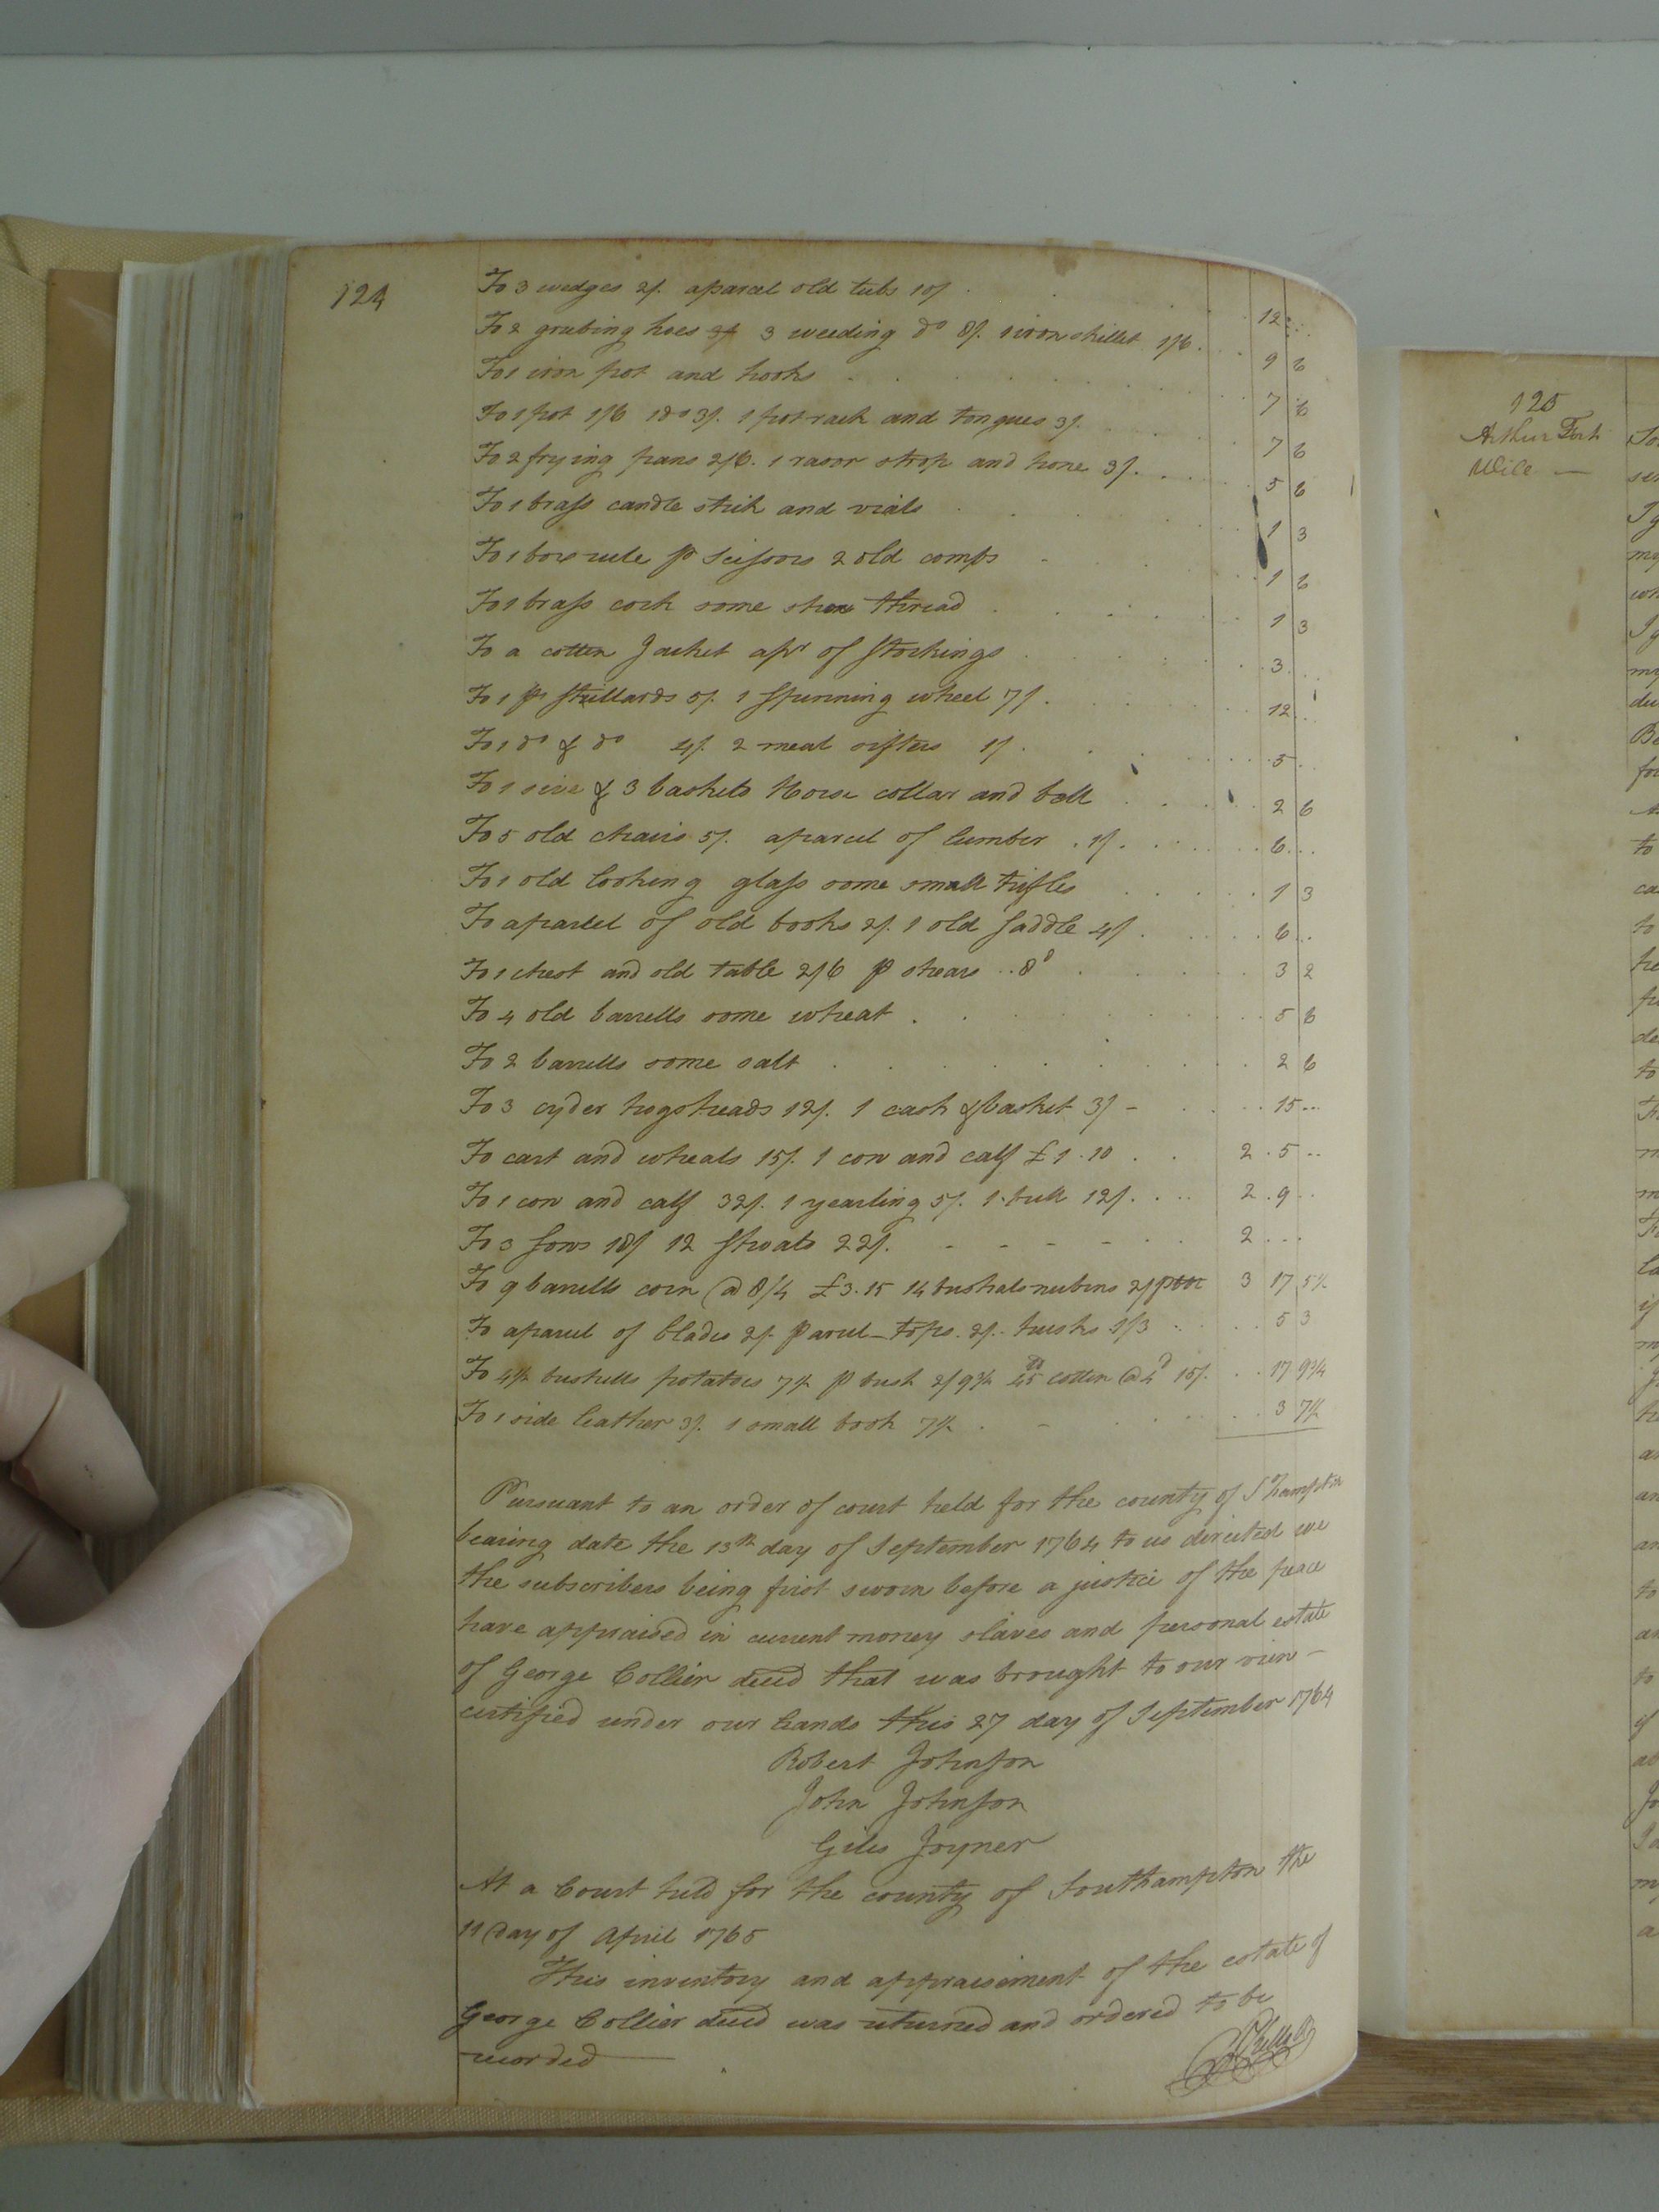 124
To 3 wedges 2/. aparcel old tubs 10/ . . 12 . .
To 2 grubing hoes 3/ 3 weeding do 8/. 1 iron skillet 1/6 . . . 9 6
To 1 iron pot and hooks . . . 7 6
To 1 pot 1/6 1 do 3/. 1 pot rack and tongues 3/. . . 7 6
To 2 frying pans 2/6. 1 rasor strop and hone 3/. . . . 5 6
To 1 brass candle stick and vials . . . 1 3
To 1 box rule p scissors 2 old comps - . . . 1 6
To 1 brass cock some shoe thread . . . 1 3
To a cotten Jacket apr of Stockings . . . 3 . .
To 1 pr Stillards 5/. 1 Spinning wheel 7/. . . . 12 . .
To 1 do & do 4/. 2 meal sifters 1/. . . . 5 . .
To 1 sive & 3 baskets Horse collar and bell . . . 2 6
To 5 old chairs 5/. aparcel of lumber . 1/. . . . 6 . .
To 1 old looking glass some small trifles . . . 1 3
To aparcel of old books 2/. 1 old Saddle 4/. . . . 6 . .
To 1 chest and old table 2/6 p shears . . 8d . . . 3 2
To 4 old barrells some wheat . . . 5 6
To 2 barrells some salt . . . 2 6
To 3 cyder hogsheads 12/. 1 cask & basket 3/ - . . . 15 . .
To cart and wheals 15/. 1 cow and calf £1.10 . . 2 . 5 . .
To 1 cow and calf 32/. 1 yearling 5/. 1 bull 12/. . . . 2 . 9 . .
To 3 Sows 18/ 12 Shoats 22/. - - - - . . 2 . . .
To 9 barrells corn @ 8/4 £3.15 14 bushals nubins 2/ 3 17 5½
To aparcel of blades 2/. parcel tops. 2/. husks 1/3 . . . 5 3
To 4½ bushells potatoes 7½ p bush 2/9¾ 45 cotten @ 4d 15/. . . 17 9¾
To 1 side leather 3/. 1 small book 7½ . - . . . 3 7½
Pursuant to an order of court held for the county of Shampton
bearing date the 13th day of September 1764 to us directed we
the subscribers being first sworn before a justice of the peace
have appraised in current money slaves and personal estate
of George Collier decd that was brought to our view -
certified under our hands this 27 day of September 1764
Robert Johnson
John Johnson
Giles Joyner
At a Court held for the county of Southampton the
11 Day of April 1765
This inventory and appraisement of the estate of
George Collier decd was returned and ordered to be
recorded
125
Arthur Fort
Wile —